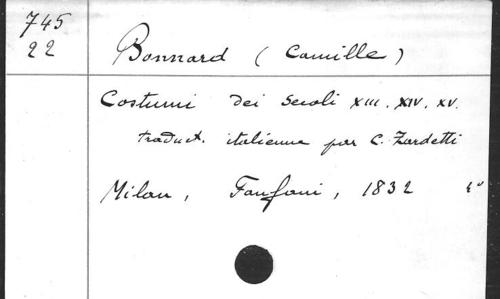 745
22
Bonnard (Camille)
Costumi dei secoli XIII. XIV. XV.
traduct. italienne par C. Zardetti
Milan, Fanfani, 1832 4°